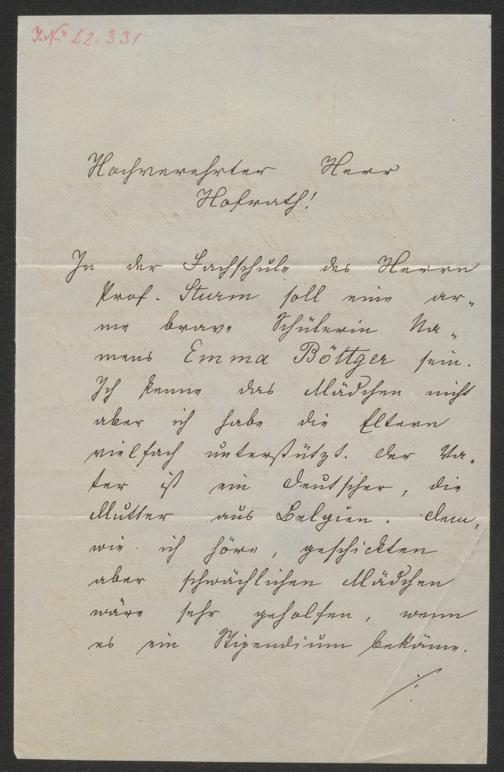 J.N. 22.331
Hochverehrter Herr
Hofrath!
In der Fachschule des Herrn
Prof. Sturm soll eine ar-
me brave Schülerin Na-
mens Emma Böttger sein.
Ich kenne das Mädchen nicht
aber ich habe die Eltern
vielfach unterstützt. Der Va-
ter ist ein Deutscher, die
Mutter aus Belgien. Dem,
wie ich höre, geschickten
aber schwächlichen Mädchen
wäre sehr geholfen, wenn
es ein Stipendium bekäme.
./.